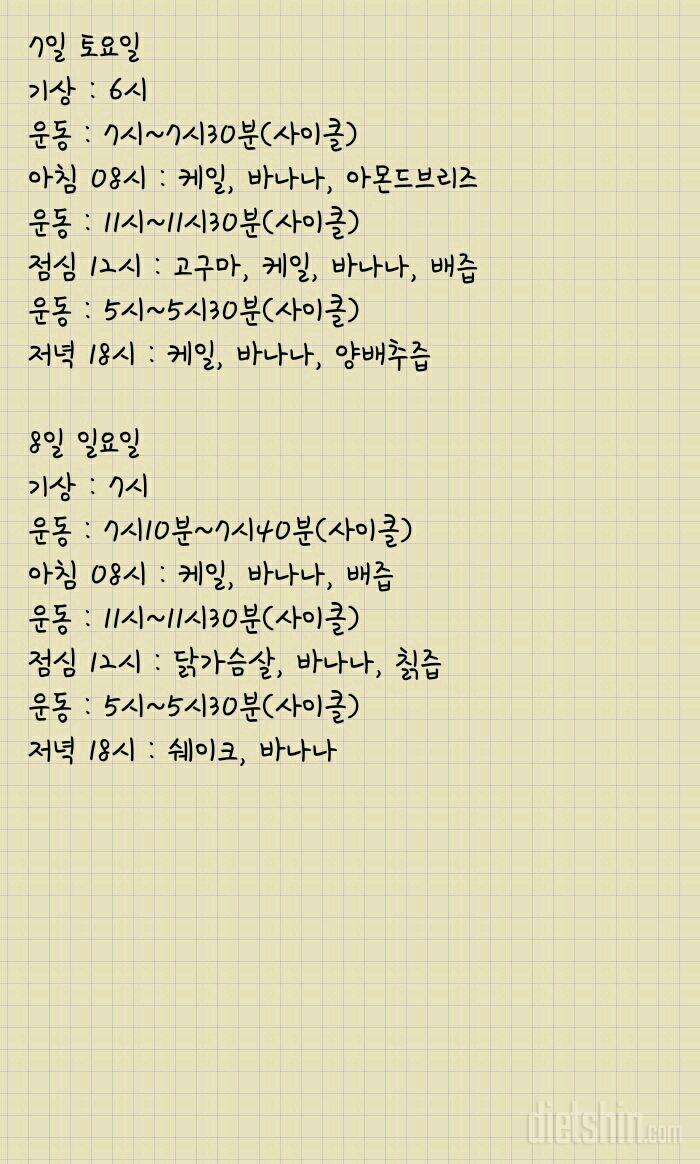 7일 토요일
기상 : 6시
운동 : 7시~7시30분(사이클)
아침 08시 : 케일, 바나나, 아몬드브리즈
운동 : 11시~11시30분(사이클)
점심 12시 : 고구마, 케일, 바나나, 배즙
운동 : 5시~5시30분(사이클)
저녁 18시 : 케일, 바나나, 양배추즙
8일 일요일
기상 : 7시
운동 : 7시10분~7시40분(사이클)
아침 08시 : 케일, 바나나, 배즙
운동 : 11시~11시30분(사이클)
점심 12시 : 닭가슴살, 바나나, 칡즙
운동 : 5시~5시30분(사이클)
저녁 18시 : 쉐이크, 바나나
dietshin.com